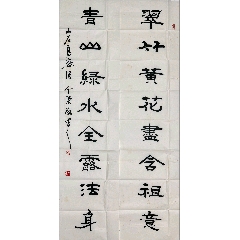 翠竹黄花盡含祖意
青山緑水全露法身